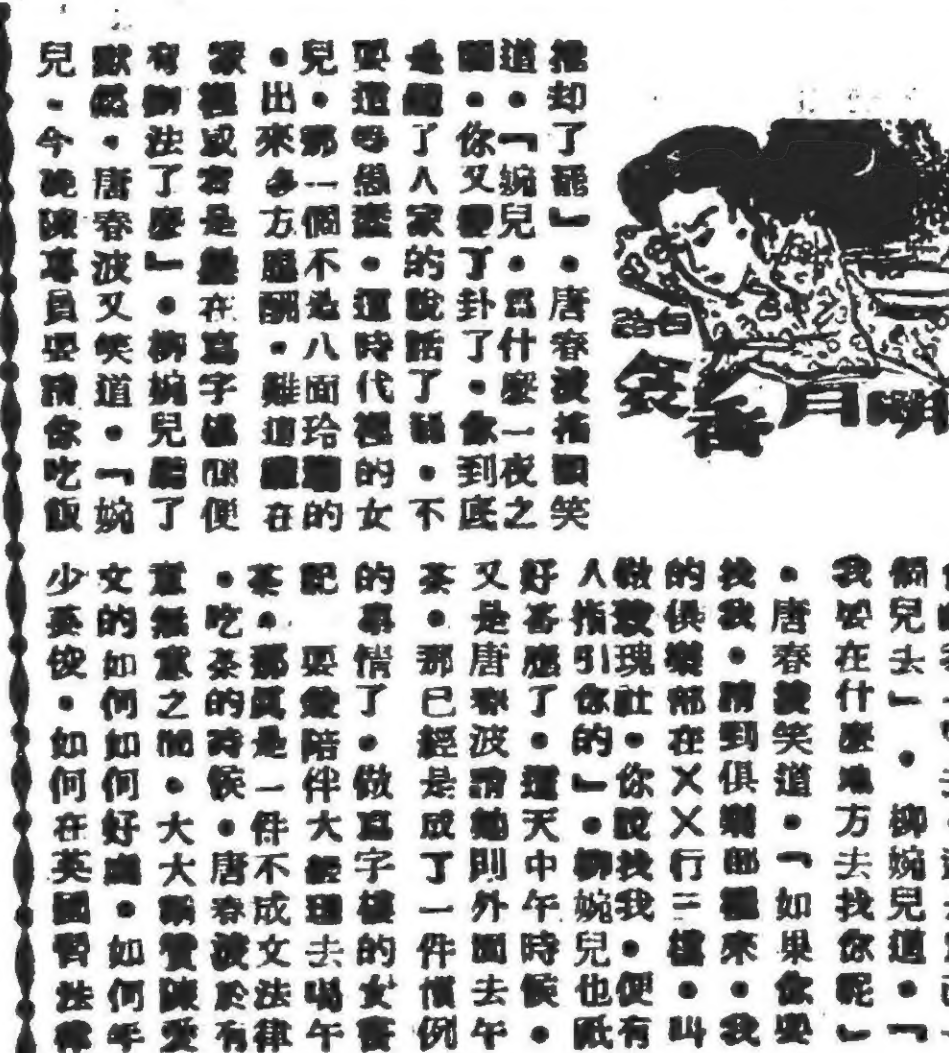 明月香衾
推却了罷」。唐春波搖頭笑
道。「婉兒。爲什麼一夜之
間。你又變了卦了。你到底
是聽了人家的說話了罷。不
要這等愚蠢。這時代裡的女
兒。那一個不是八面玲瓏的
。出來多方應酬。難道躲在
家裡或者是躲在寫字樓便
有辦法了麼」。柳婉兒聽了
默然。唐春波又笑道。「婉
兒。今晚陳專員要請你吃飯
個兒去」。柳婉兒道。「
我要在什麼地方去找你呢」
。唐春波笑道。「如果你要
找我。請到俱樂部裡來。我
的俱樂部在XX行三樓。叫
做玫瑰社。你說找我。便有
人指引你的」。柳婉兒也祇
好答應了。這天中午時候。
又是唐春波請她到外面去午
茶。那已經是成了一件慣例
的事情了。做寫字樓的女書
記 要陪伴大經理去喝午
茶。那眞是一件不成文法律
。吃茶的時候。唐春波於有
意無意之間。大大稱贊陳愛
文的如何如何好處。如何年
少英俊。如何在英國習法律